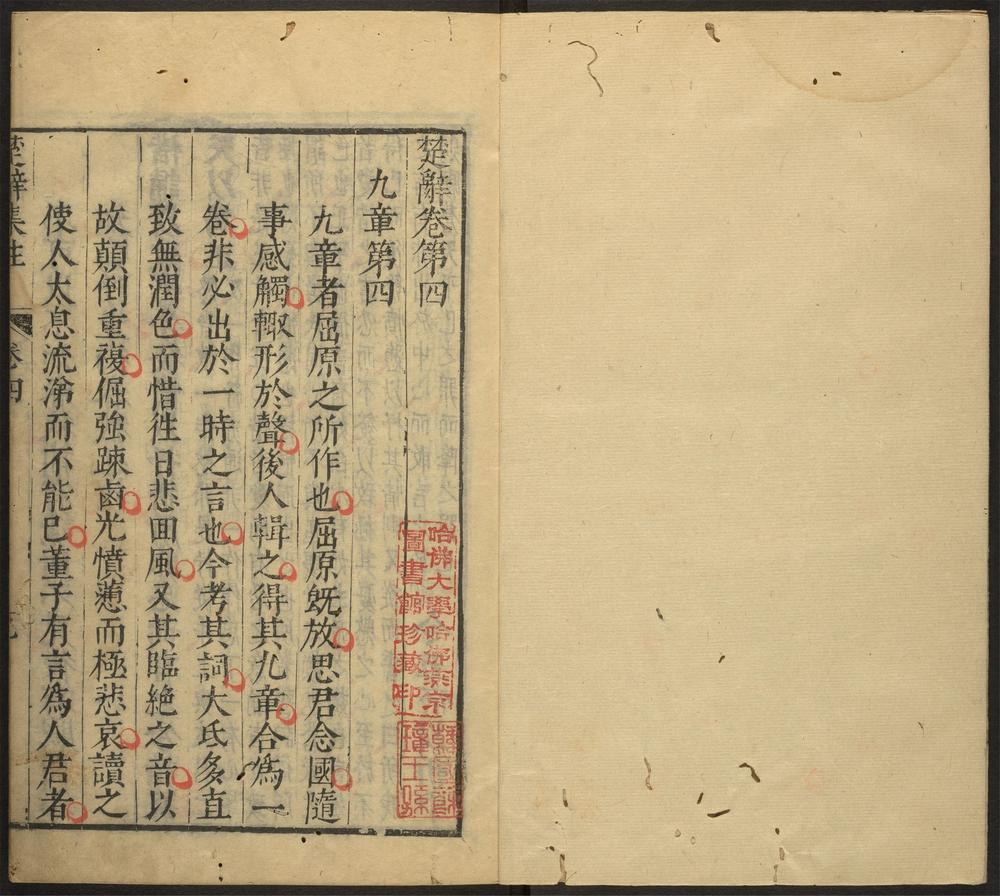 楚辭卷第四
九章第四
九章者屈原之所作也屈原旣放思君念國隨
事感觸輙形於聲後人輯之得其九章合爲一
卷非必出於一時之言也今考其詞大氐多直
致無潤色而惜徃日悲囬風又其臨絶之音以
故顛倒重複倔強踈鹵尤憤懣而極悲哀讀之
使人太息流涕而不能已董子有言爲人君者
楚辭集注
卷四
哈佛大學哈佛燕京
圖書館珍藏印